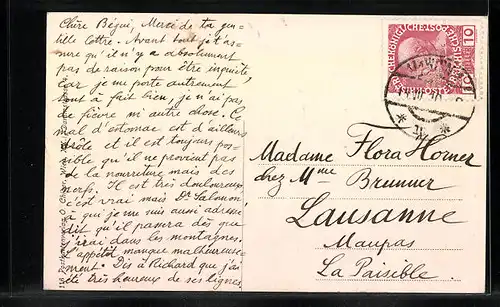 Chère Bégui, Merci de ta gen-
tille lettre. Avant tout je t'as-
sure qu'il n'y a absolument
pas de raison pour être inquiète,
car je me porte autrement
tout à fait bien, je n'ai pas
de fièvre ni autre chose. Ce
mal d'estomac est d'ailleurs
drôle et il est toujours pos-
sible qu'il ne provient pas
de la nourriture mais des
nerfs. Il est très douloureux
c'est vrai mais Dr. Salomon,
à qui je me suis aussi adressé
dit qu'il passera dès que
j'irai dans les montagnes.
L'appétit manque malheureuse-
ment. Dis à Richard que j'ai
été très heureux de ses lignes
Madame Flora Horner
chez Mme Brunner
Lausanne
Maupas
La Paisible.
10